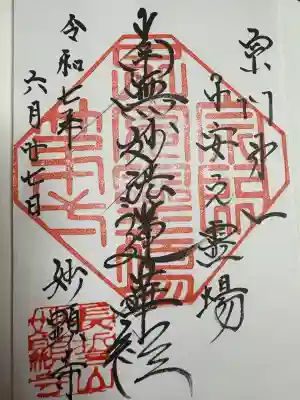 宗門第一
子安之霊場
南無妙法蓮華経
妙顕寺
令和七年
六月廿七日